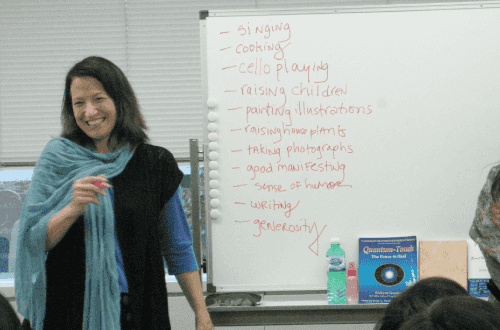 - singing
- cooking
- cello playing
- raising children
- painting illustrations
- raising house plants
- taking photographs
- good manifesting
- sense of humor
- writing
- generosity
Quantum-Touch
The Power to Heal